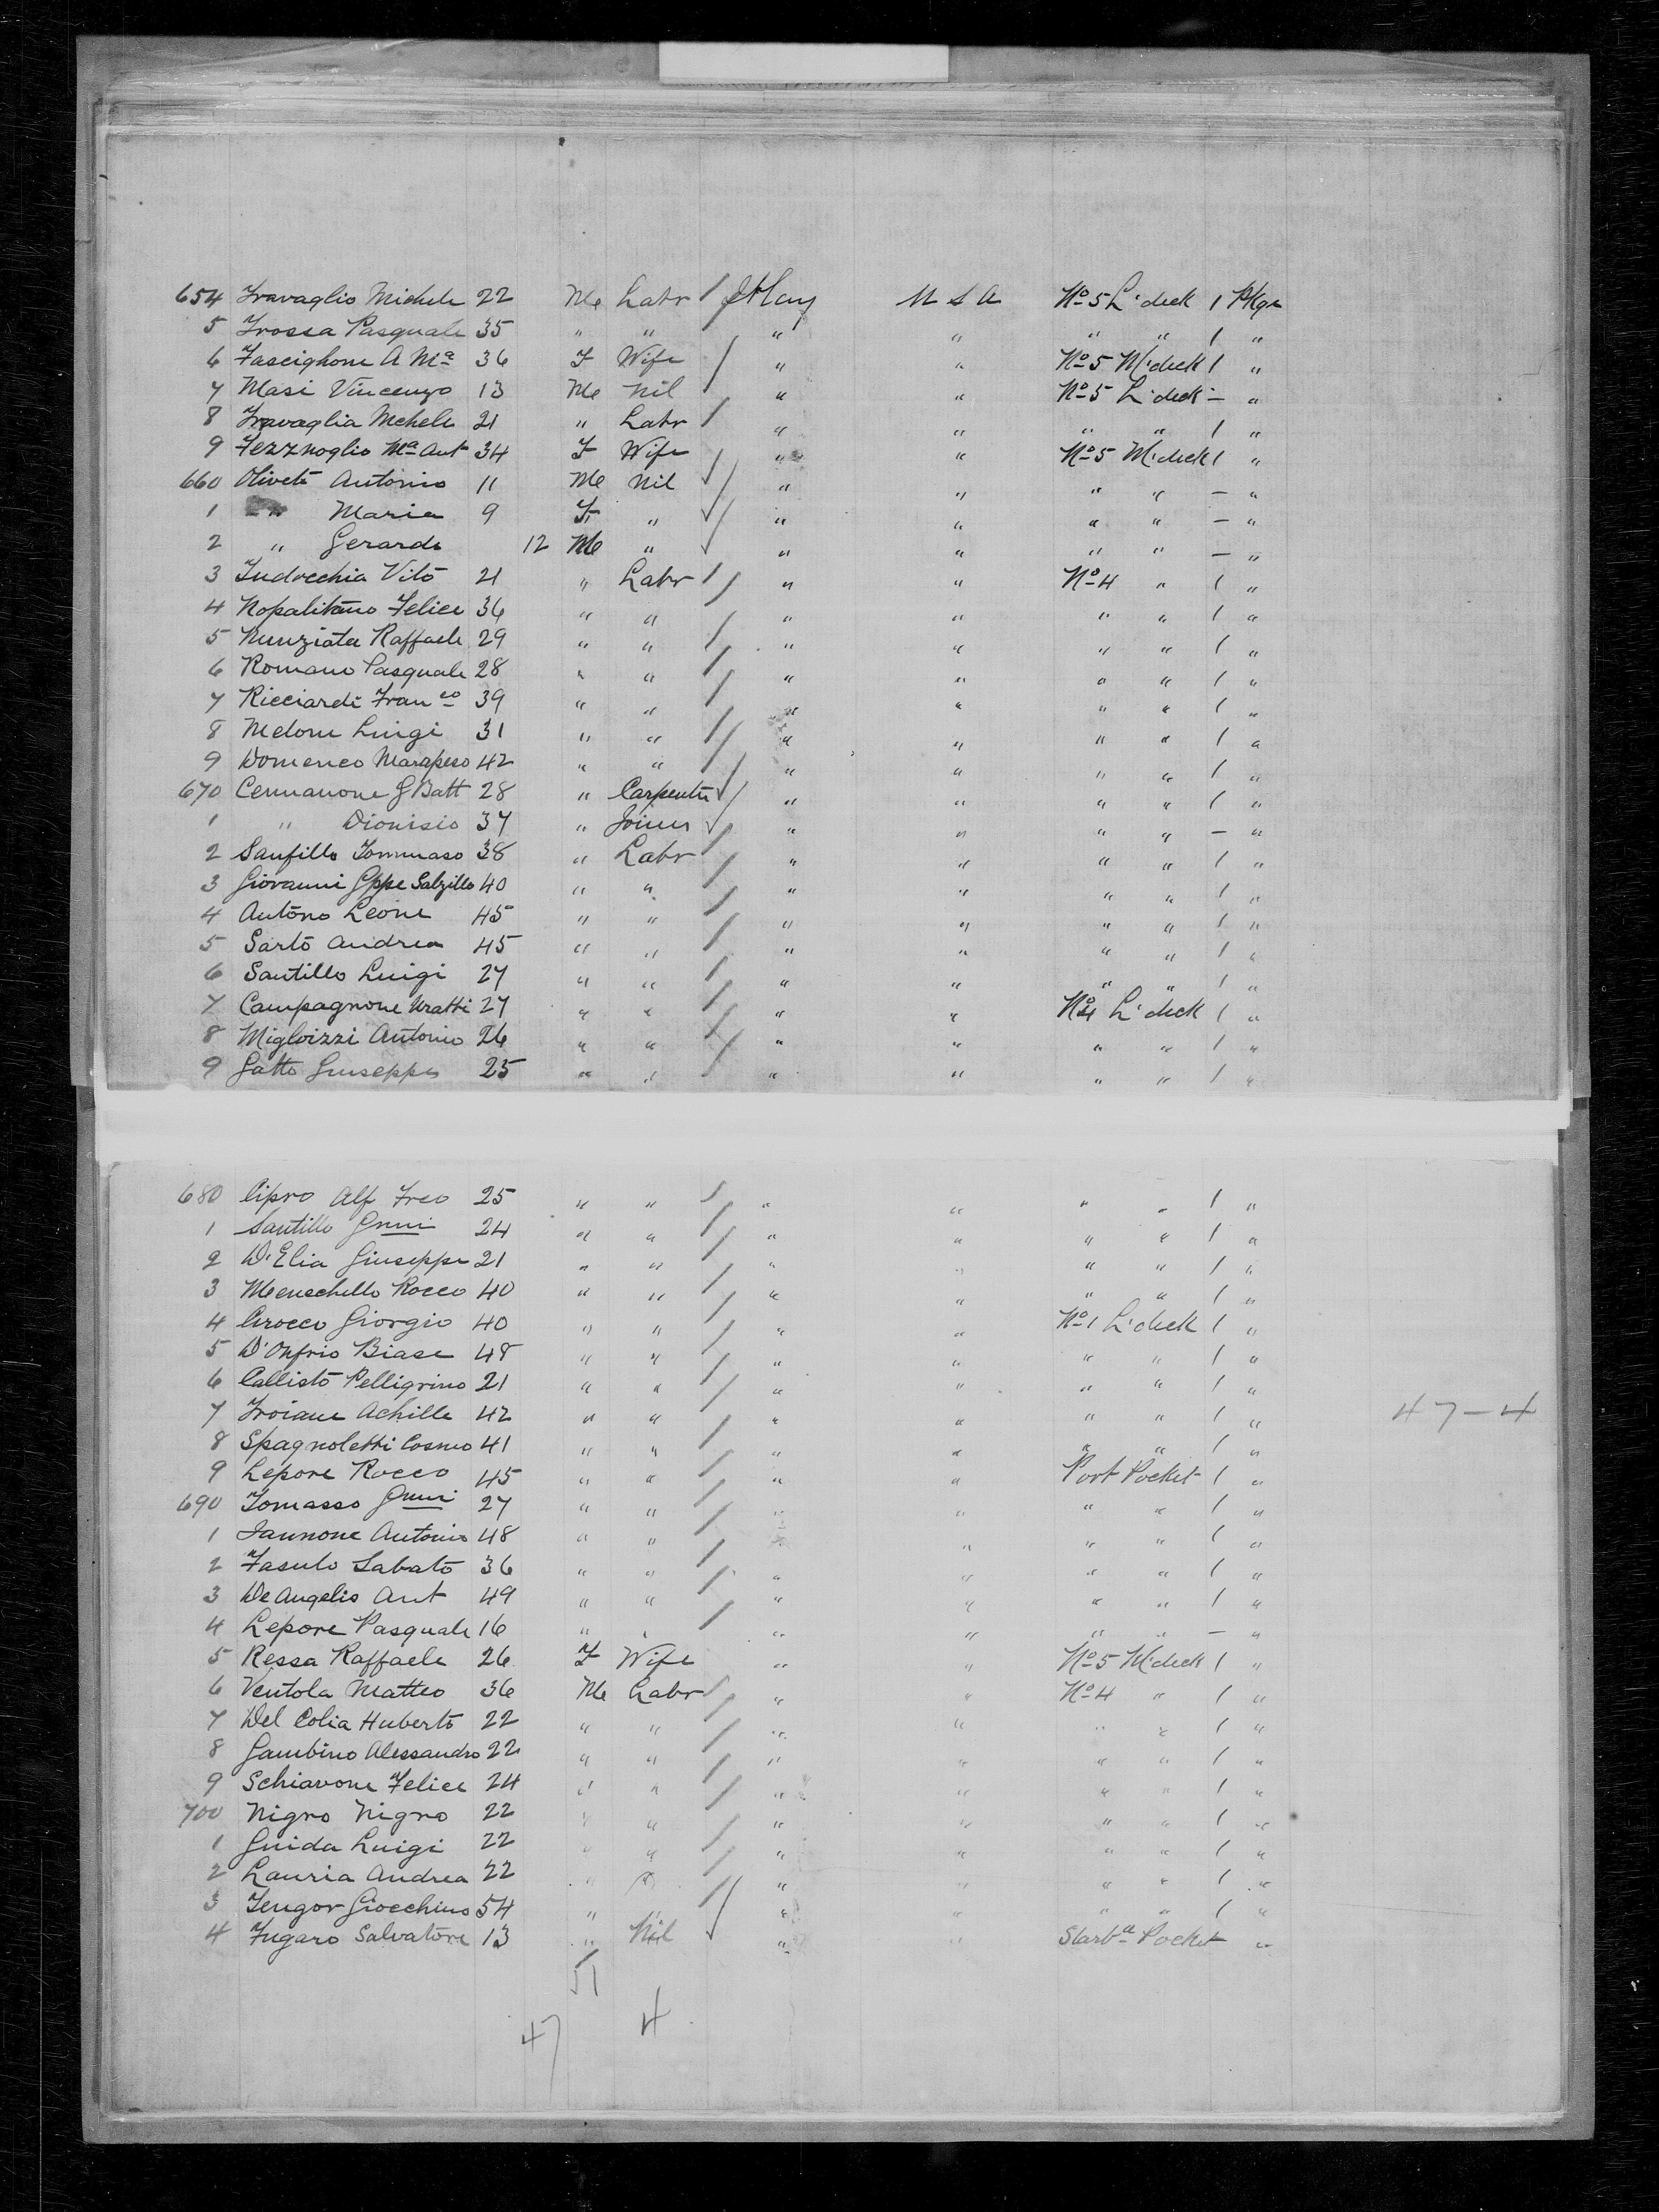 654 Travaglio Michele 22 Me Labr / Italy U S A No 5 L. deck 1 Pkge
5 Trossa Pasquale 35 " " " " " " 1 "
6 Fascighone A Ma 36 F Wife / " " No 5 M. deck 1 "
7 Masi Vincenzo 13 Me Nil " " No 5 L. deck - "
8 Travaglia Mehele 21 " Labr / " " " " 1 "
9 Fezznoglio Ma Ant 34 F Wife " " No 5 M. deck 1 "
660 Oliveto Antonio 11 Me Nil √ / " " " " - "
1 " Maria 9 F " √ / " " " " - "
2 " Gerardo 12 Me " √ " " " " - "
3 Indocchia Vito 21 " Labr / " " No 4 " 1 "
4 Nopalitano Felice 36 " " / " " " " 1 "
5 Nunziata Raffaele 29 " " / " " " " 1 "
6 Romano Pasquale 28 " " / " " " " 1 "
7 Ricciardi Franco 39 " " / " " " " 1 "
8 Melone Luigi 31 " " / " " " " 1 "
9 Domenco Marapeso 42 " " / " " " " 1 "
670 Cennanone G Batt 28 " Carpenter √ / " " " " 1 "
1 " Dionisio 37 " Joiner √ " " " " - "
2 Saufillo Tommaso 38 " Labr / " " " " 1 "
3 Giovanni Gppe Salzillo 40 " " / " " " " 1 "
4 Antono Leone 45 " " / " " " " 1 "
5 Sarto Andrea 45 " " / " " " " 1 "
6 Santillo Luigi 27 " " / " " " " 1 "
7 Campagnone 27 " " / " " No 4 L. deck 1 "
8 Migloizzi Antonio 26 " " / " " " " 1 "
9 Gatto Giuseppe 25 " " / " " " " 1 "
680 Cipro Alf Freo 25 " " / " " " " 1 "
1 Santillo Gnni 24 " " / " " " " 1 "
2 D'Elia Giuseppe 21 " " / " " " " 1 "
3 Menschello Rocco 40 " " / " " " " 1 "
4 Cirocco Giorgio 40 " " / " " No 1 L. deck 1 "
5 D'Onfrio Biase 48 " " / " " " " 1 "
6 Callisto Pelligrino 21 " " / " " " " 1 "
7 Troiane Achille 42 " " / " " " " 1 " 47-4
8 Spagnoletti Cosmo 41 " " / " " " " 1 "
9 Lepore Rocco 45 " " / " " Port Pocket 1 "
690 Tomasso Gnni 27 " " / " " " " 1 "
1 Iannone Antonio 48 " " / " " " " 1 "
2 Fasulo Sabato 36 " " / " " " " 1 "
3 De Angelis Ant 49 " " / " " " " 1 "
4 Lepore Pasquale 16 " " / " " " " - "
5 Ressa Raffaele 26 F Wife " " No 5 M. deck 1 "
6 Ventola Matteo 36 Me Labr / " " No 4 " 1 "
7 Del Colia Huberto 22 " " / " " " " 1 "
8 Gambino Alessandro 22 " " / " " " " 1 "
9 Schiavone Felice 24 " " / " " " " 1 "
700 Nigro Nigro 22 " " / " " " " 1 "
1 Guida Luigi 22 " " / " " " " 1 "
2 Lauria Andrea 22 " " / " " " " 1 "
3 Tengor Giocchino 54 " " / " " " " 1 "
4 Fugaro Salvatore 13 " Nil √ " " Starbd Pocket - "
51
47 4